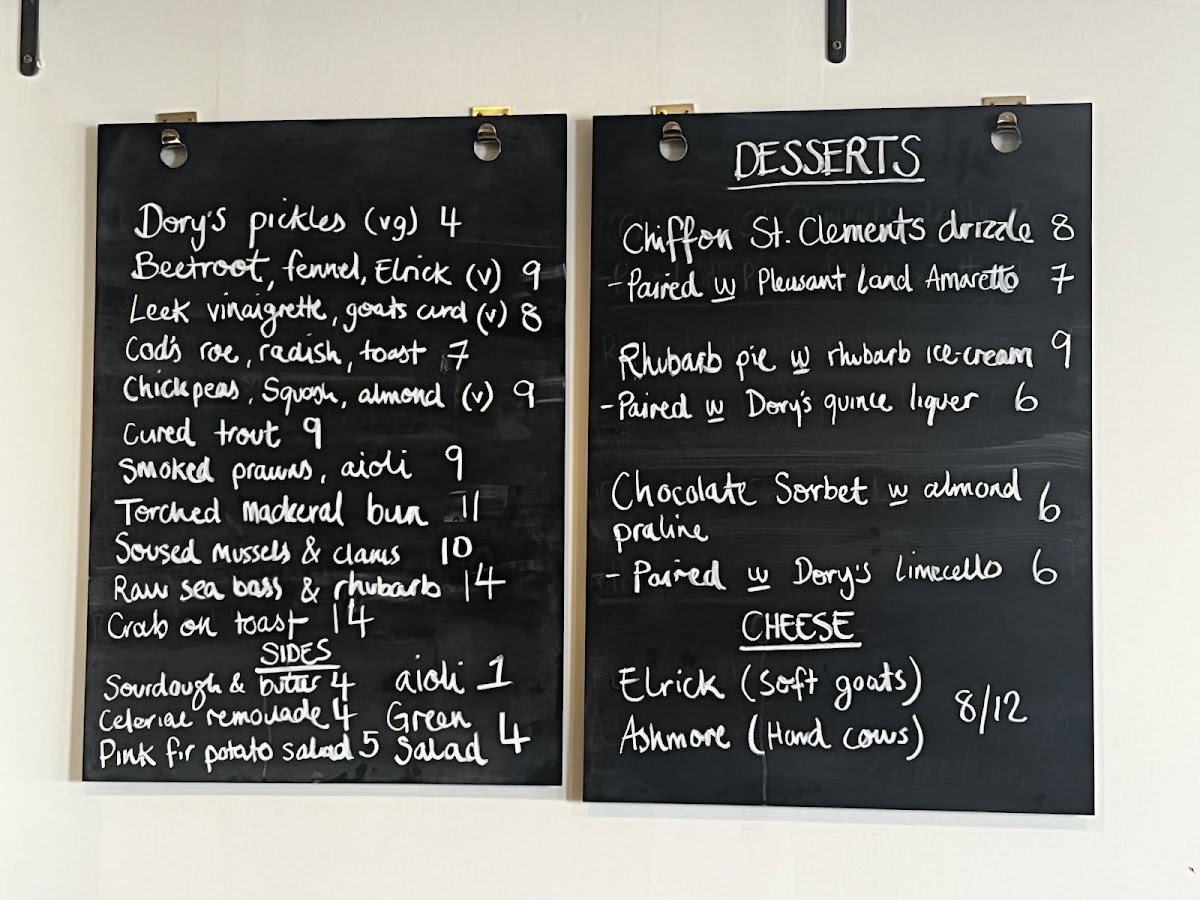 Dory's pickles (vg) 4
Beetroot, fennel, Elrick (v) 9
Leek vinaigrette, goats curd (v) 8
Cod's roe, radish, toast 7
Chickpeas, Squash, almond (v) 9
Cured trout 9
Smoked prawns, aioli 9
Torched mackeral bun 11
Soused mussels & clams 10
Raw sea bass & rhubarb 14
Crab on toast 14
SIDES
Sourdough & butter 4
Celeriac remoulade 4
Pink fir potato salad 5
aioli 1
Green
Salad 4
DESSERTS
Chiffon St. Clements drizzle 8
- Paired w Pleasant Land Amaretto 7
Rhubarb pie w rhubarb ice-cream 9
- Paired w Dory's quince liquer 6
Chocolate Sorbet w almond 6
praline
- Paired w Dory's limecello 6
CHEESE
Elrick (soft goats)
Ashmore (Hard cows)
8/12